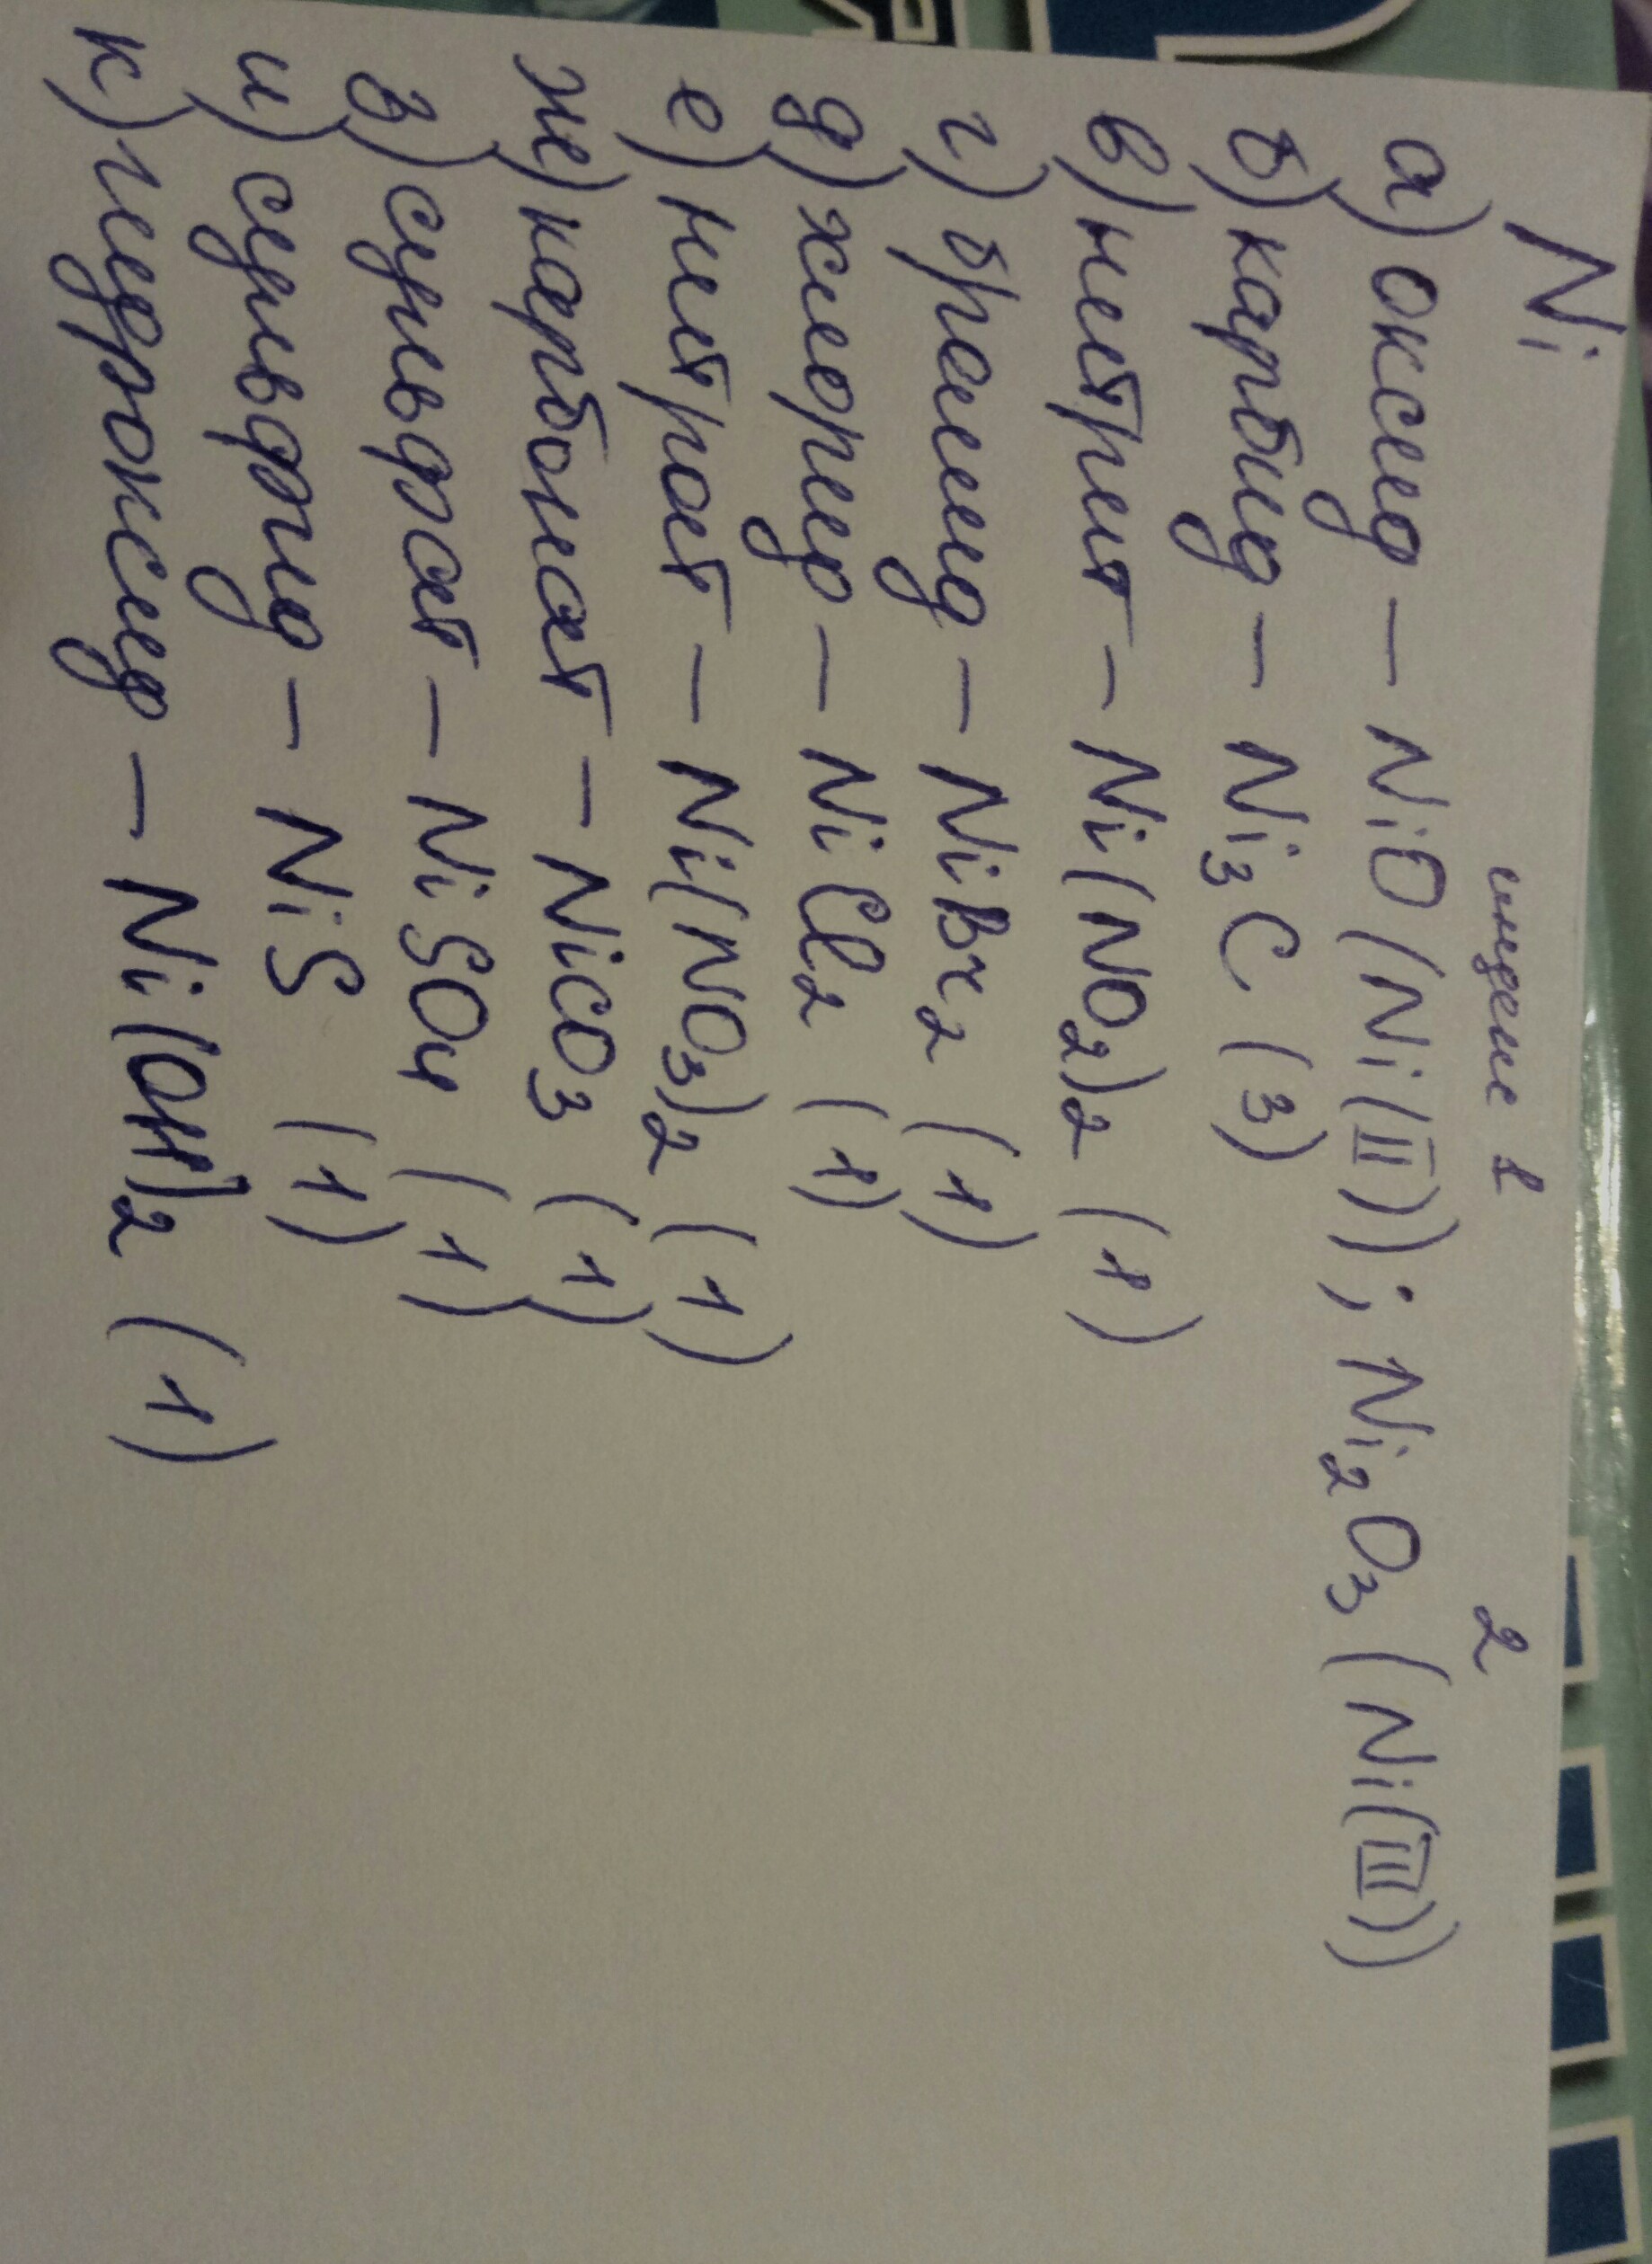 Ni
индекс 1 2
а) оксид – NiO (Ni(II)); Ni₂O₃ (Ni(III))
б) карбид – Ni₃C (3)
в) нитрит – Ni(NO₂)₂ (1)
г) бромид – NiBr₂ (1)
д) хлорид – NiCl₂ (1)
е) нитрат – Ni(NO₃)₂ (1)
ж) карбонат – NiCO₃ (1)
з) сульфат – NiSO₄ (1)
и) сульфид – NiS (1)
к) гидроксид – Ni(OH)₂ (1)